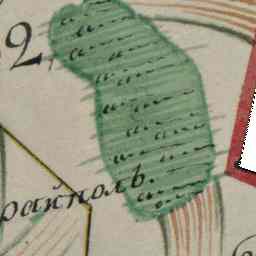 2
райполь